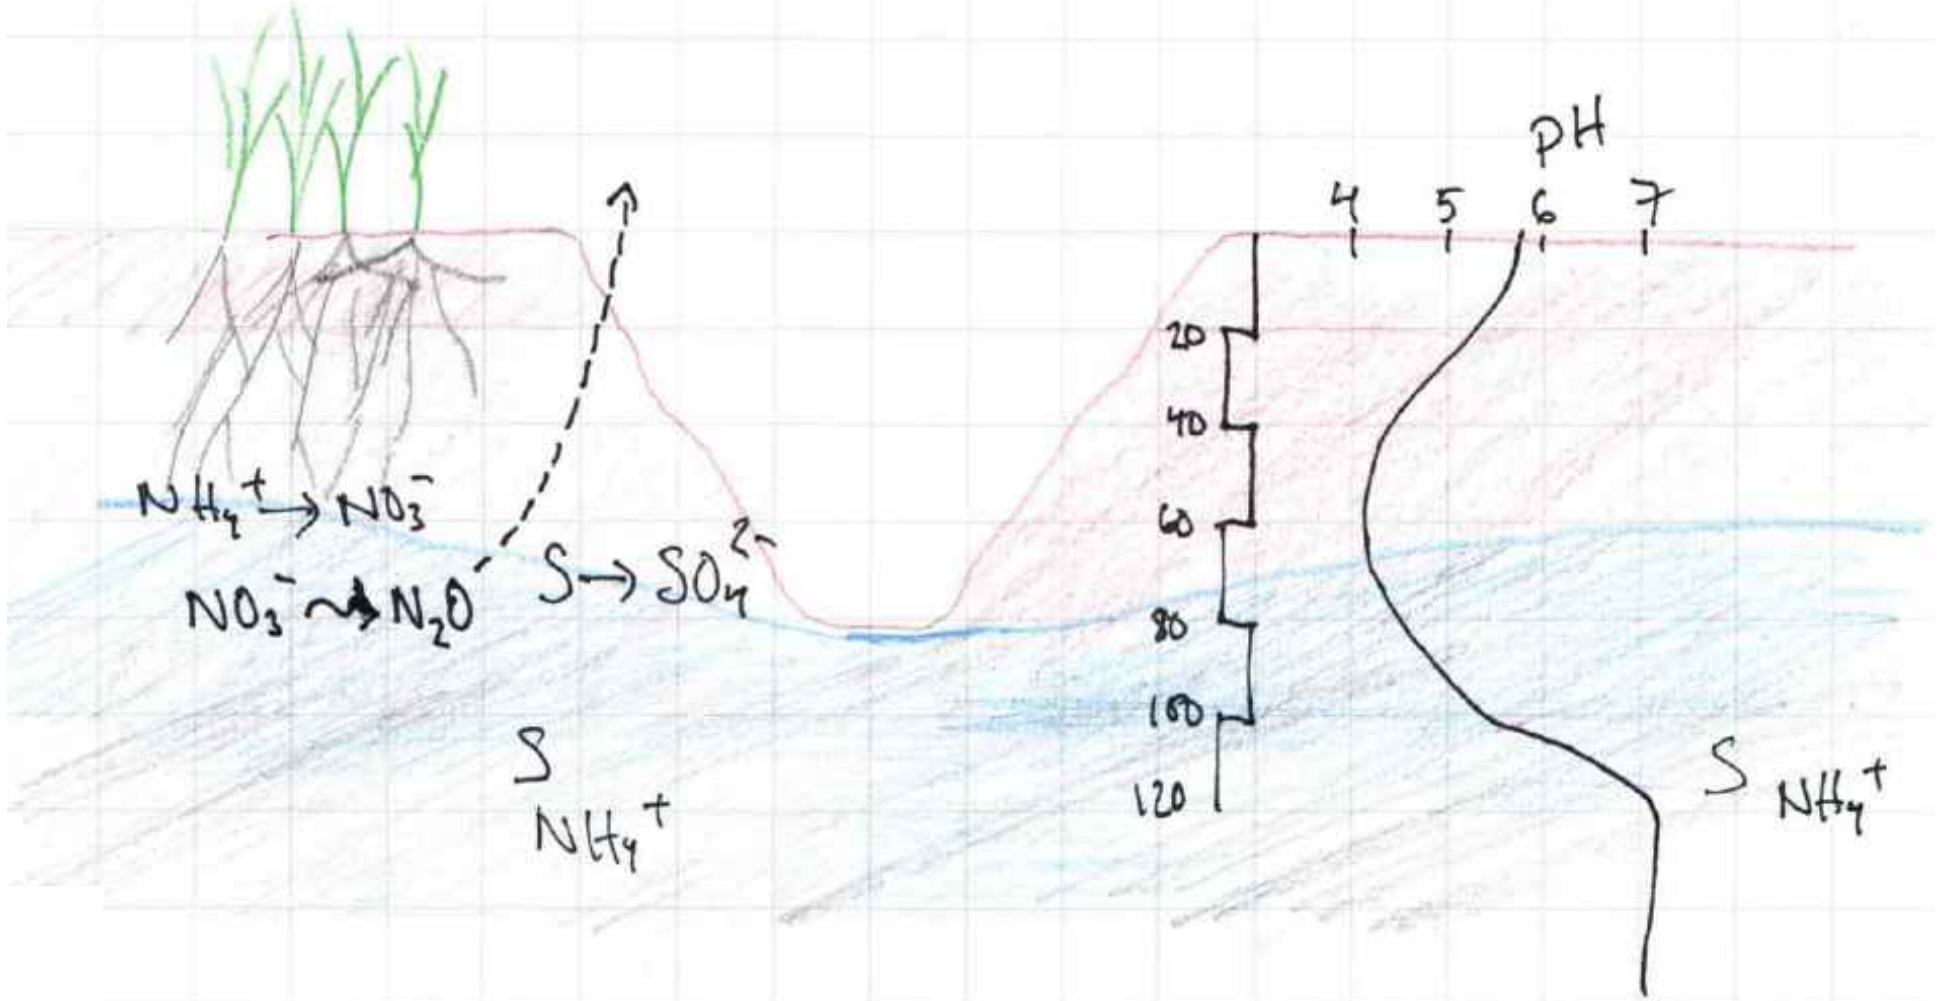 pH
4 5 6 7
20
40
60
80
100
120
NH₄⁺ → NO₃⁻
NO₃⁻ → N₂O
S → SO₄²⁻
S
NH₄⁺
S
NH₄⁺